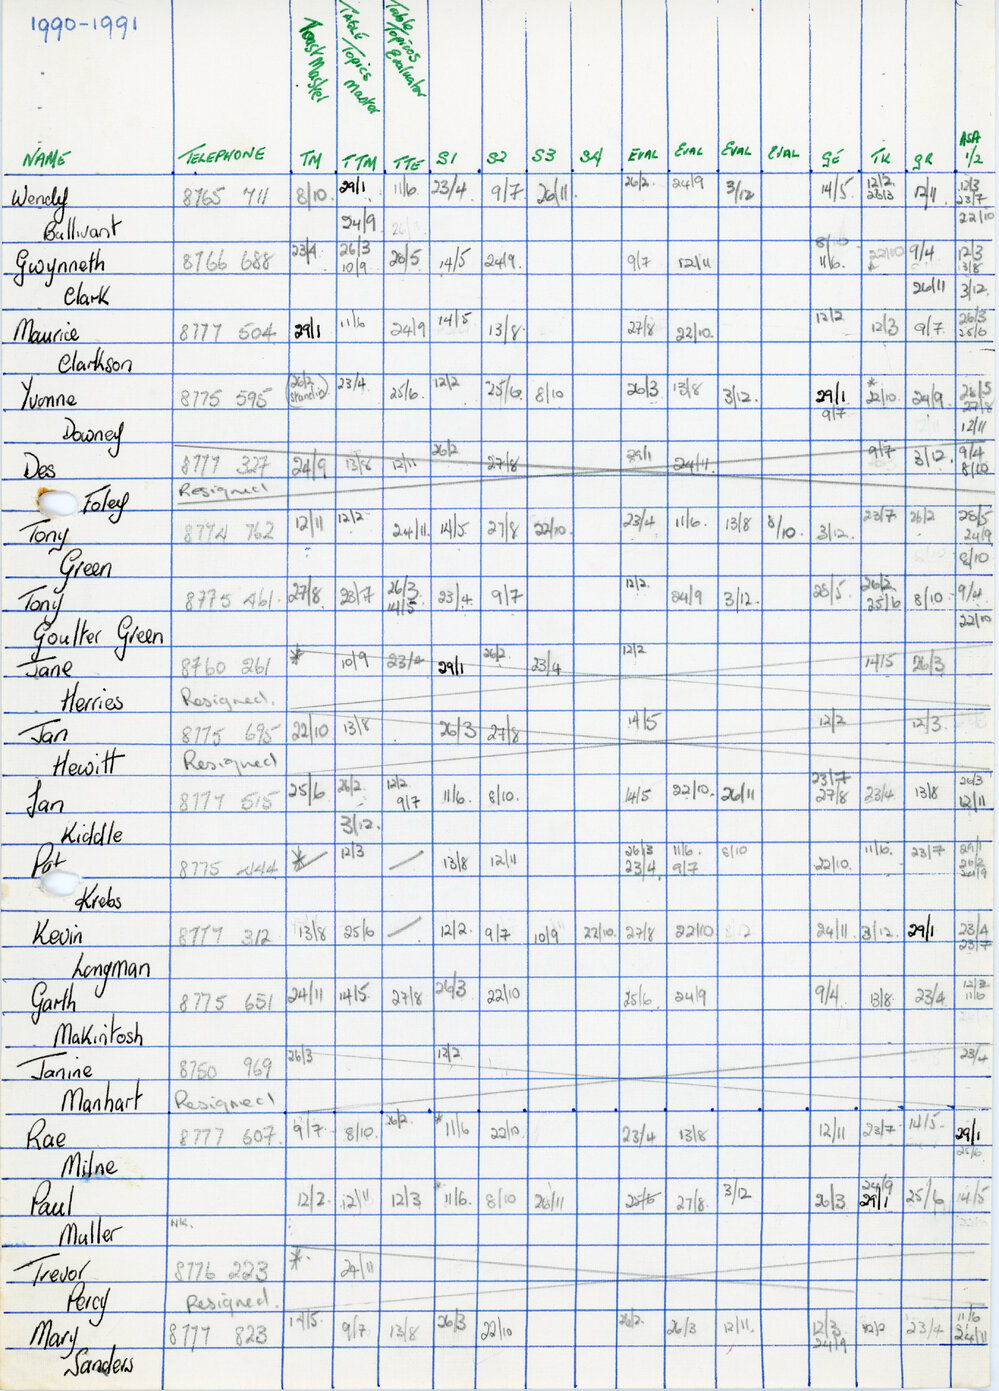 1990-1991
Toast Master
TABLE Topics Master
Table Topics Evaluator
NAME TELEPHONE TM TTM TTE S1 S2 S3 S4 EVAL EVAL EVAL EVAL GE TK GR ASA 1/2
Wendy 8765 711 8/10 29/1 11/6 23/4 9/7 26/11 26/2 24/9 3/12 14/5 12/2 26/3 12/11 12/3 23/7
Bullivant 24/9 22/10
Gwynneth 8766 688 23/4 26/3 10/9 28/5 14/5 24/9 9/7 12/11 8/10 11/6 22/10 * 9/4 12/3 13/8
Clark 26/11 3/12
Maurice 8777 504 29/1 11/6 24/9 14/5 13/8 27/8 22/10 12/2 12/3 9/7 26/3 25/6
Clarkson
Yvonne 8775 595 (26/2 standin) 23/4 25/6 12/2 25/6 8/10 26/3 13/8 3/12 29/1 9/7 * 22/10 24/9 28/5 27/8
Downey 12/11
Des 8777 327 24/9 13/8 12/11 26/2 27/8 29/1 24/11 9/7 3/12 9/4 8/10
Foley Resigned
Tony 8774 762 12/11 12/2 24/11 14/5 27/8 22/10 23/4 11/6 13/8 8/10 3/12 23/7 26/2 28/5 24/9
Green 8/10
Tony 8775 461 27/8 23/7 26/3 14/5 23/4 9/7 12/2 24/9 3/12 28/5 26/2 25/6 8/10 9/4
Goulter Green 22/10
Jane 8760 261 * 10/9 23/4 29/1 26/2 23/4 12/2 14/5 26/3
Herries Resigned.
Jan 8775 695 22/10 13/8 26/3 27/8 14/5 12/2 12/3
Hewitt Resigned
Jan 8777 515 25/6 26/2 12/2 9/7 11/6 8/10 14/5 22/10 26/11 23/7 27/8 23/4 13/8 26/3 12/11
Kiddle 3/12
Pat 8775 444 * 12/3 13/8 12/11 26/3 23/4 11/6 9/7 8/10 22/10 11/6 23/7 29/1 26/2 24/9
Krebs
Kevin 8777 312 13/8 25/6 12/2 9/7 10/9 22/10 27/8 22/10 24/11 3/12 29/1 23/4 23/7
Longman
Garth 8775 651 24/11 14/5 27/8 26/3 22/10 25/6 24/9 9/4 13/8 23/4 12/3 11/6
Makintosh
Janine 8750 969 26/3 12/2 23/4
Manhart Resigned
Rae 8777 607 9/7 8/10 26/2 * 11/6 22/10 23/4 13/8 12/11 23/7 14/5 29/1
Milne 25/6
Paul 12/2 12/11 12/3 11/6 8/10 26/11 25/6 27/8 3/12 26/3 24/9 29/1 25/6 14/5
Muller NK.
Trevor 8776 223 * 24/11
Percy Resigned.
Mary 8777 823 14/5 9/7 13/8 26/3 22/10 26/2 26/3 12/11 12/3 24/9 12/2 23/4 11/6 24/11
Sanders